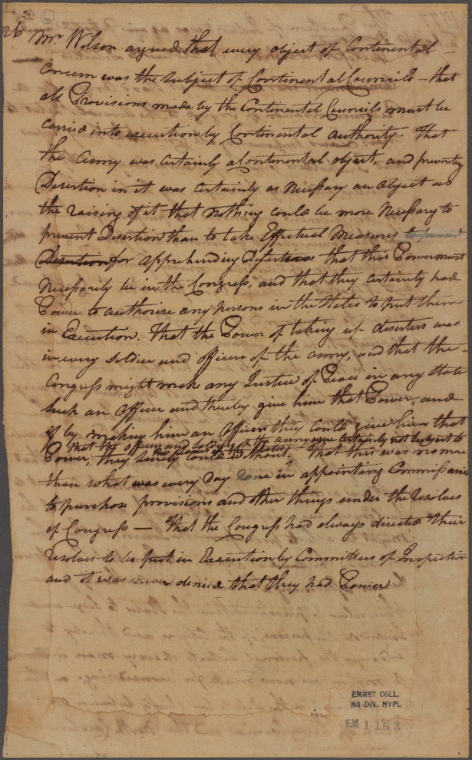 26
Mr Wilson argued that every object of Continental
Concern was the subject of Continental Councils — that
all Provisions made by the Continental Councils must be
carried into execution by Continental authority. That
the Army was certainly a Continental object, and preventing
Desertion in it was certainly as necessary an object as
the raising of it that nothing could be more Necessary to
prevent Desertion than to take Effectual Measures to
Desertion for apprehending Deserters that this Power must
necessarily be in the Congress, and that they certainly had
Power to authorise any persons in the States to put them
in Execution. That the Power of taking up deserters was
in every Soldier and officer of the army, and that the
Congress might make any Justice of Peace in any State
such an Officer and thereby give him that Power, and
if by making him an Officer they could give him that
that the officers and soldiers of the army were certainly not subject to
Power, they surely could without. That this was no more
than what was every day done in appointing Commissaries
to purchase provisions and other things under the Resolves
of Congress — That the Congress had always directed their
resolves to be put in Execution by Committees of Inspection
and it was never denied that they had Power
EMMET COLL.
MS DIV. NYPL
EM